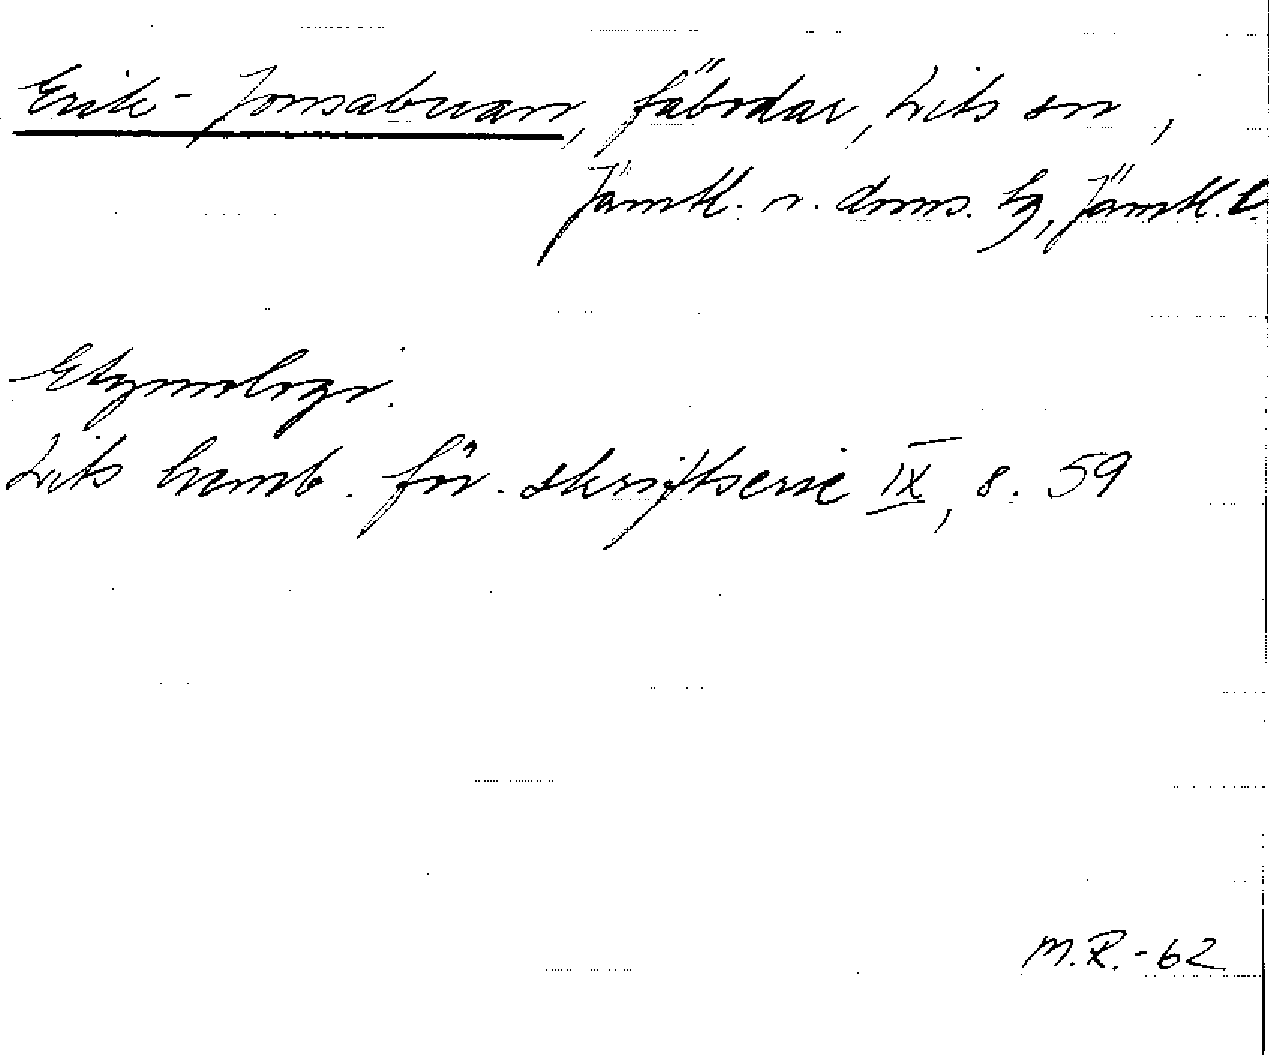 Erik-Jonsabuan, fäbodar, Lits sn,
Jämtl. n. doms. hg, Jämtl. l.
Etymologi.
Lits hemb. för. skriftserie IX, s. 59
M.R.-62